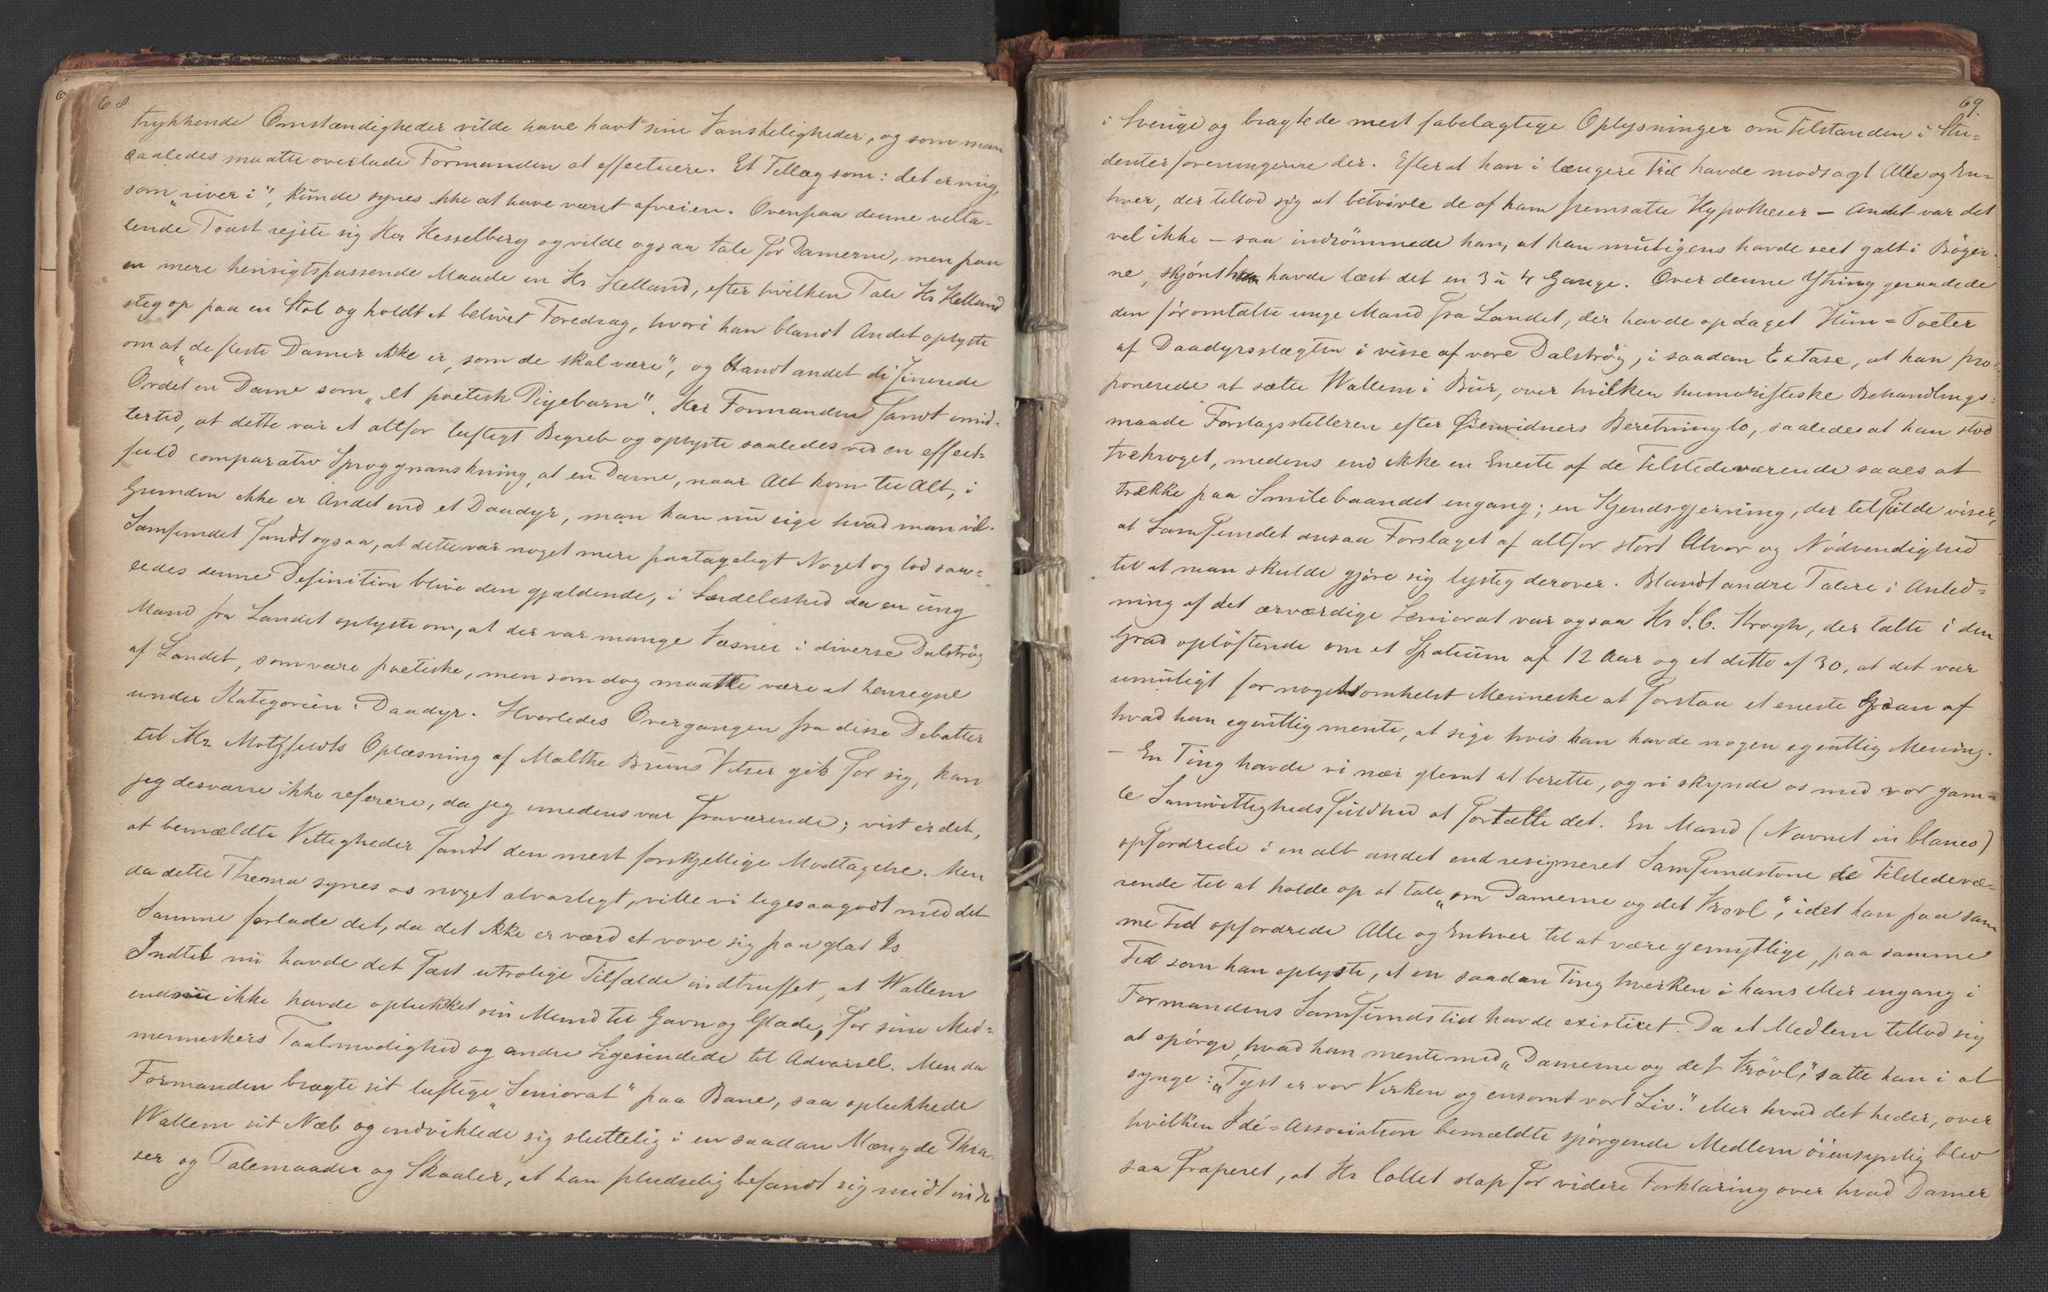 68
trykkende Omstændigheder vilde have havt sine Vanskeligheder, og som man
saaledes maatte overlade Formanden at effectuere. Et Tillæg som: det er mig,
som „river i“, kunde synes ikke at have været afveien. Ovenpaa denne velta-
lende Toast rejste sig Her Hesselberg og vilde ogsaa tale for Damerne, men paa
en mere hensigtspassende Maade en Hr Helland, efter hvilken Tale Hr Helland
steg op paa en Stol og holdt et belivet Foredrag, hvori han blandt Andet oplyste
om at „de fleste Damer ikke er, som de skal være“, og blandt andet difinerede
Ordet en Dame som „et poetisk Pigebarn“. Her Formanden fandt imid-
lertid, at dette var et altfor luftigt Begreb og oplyste saaledes ved en effect-
fuld comparativ Sproggranskning, at en Dame, naar Alt kom til Alt, i
Grunden ikke er Andet end et Daadyr, man kan nu sige hvad man vil.
Samfundet fandt ogsaa, at dette var noget mere paatageligt Noget og lod saa-
ledes denne Definition blive den gjældende, i Særdeleshed da en ung
Mand fra Landet oplyste om, at der var mange Væsner i diverse Dalstrøg
af Landet, som vare poetiske, men som dog maatte være at henregne
under Kategorien: Daadyr. Hvorledes Overgangen fra disse Debatter
til Hr Motzfeldts Oplæsning af Malthe Bruns Vitser gik for sig, kan
jeg desværre ikke referere, da jeg imedens var fraværende; vist er det,
at bemældte Vittigheder fandt den mest forskjellige Modtagelse. Men
da dette Thema synes os noget alvorligt, ville vi ligesaagodt med det
Samme forlade det, da det ikke er værd at vove sig paa glat Is.
Indtil nu havde det fast utrolige Tilfælde indtruffet, at Wallem
endnu ikke havde oplukket sin Mund til Gavn og Glæde, for sine Med-
menneskers Taalmodighed og andre Ligesindede til Advarsel. Men da
Formanden bragte sit luftige „Seniorat“ paa Bane, saa oplukkede
Wallem sit Næb og indviklede sig sluttelig i en saadan Mængde Phra-
ser og Talemaader og Skaaler, at han pludselig befandt sig midt inde
69.
i Sverige og bragte de mest fabelagtige Oplysninger om Tilstanden i Stu-
denterforeningerne der. Efterat han i længere Tid havde modsagt Alle og En-
hver, der tillod sig at betvivle de af ham fremsatte Hypotheser – Andet var det
vel ikke – saa indrømmede han, at han muligens havde seet galt i Bøger-
ne, skjønt han havde læst det en 3 à 4 Gange. Over denne Ytring geraadede
den før omtalte unge Mand fra Landet, der havde opdaget Hun-Poeter
af Daadyrsslægten i visse af vore Dalstrøg, i saadan Extase, at han pro-
ponerede at sætte Wallem i Bur, over hvilken humoristiske Behandlings-
maade Forslagsstilleren efter Øienvidners Beretning lo, saaledes at han stod
tvekroget, medens end ikke en Eneste af de Tilstedeværende saaes at
trække paa Smilebaandet engang; en Kjendsgjerning, der tilfulde viser,
at Samfundet ansaa Forslaget af altfor stort Alvor og Nødvendighed
til at man skulde gjøre sig lystig derover. Blandt andre Talere i Anled-
ning af det ærværdige Seniorat var ogsaa Hr S. C. Krogh, der talte i den
Grad opløftende om et Spatium af 12 Aar og et ditto af 30, at det var
umuligt for nogetsomhelst Menneske at forstaa et eneste Gran af
hvad han egentlig mente, at sige hvis han havde nogen egentlig Mening.
– En Ting havde vi nær glemt at berette, og vi skynde os med vor gam-
le Samvittighedsfuldhed at fortælle det. En Mand (Navnet in blanco)
opfordrede i en alt andet end resigneret Samfundstone de Tilstedevæ-
rende til at holde op at tale „om Damerne og det Vrøvl“, idet han paa sam-
me Tid opfordrede Alle og Enhver til at være gemytlige, paa samme
Tid som han oplyste, at en saadan Ting hverken i hans eller engang i
Formandens Samfundstid havde existeret. Da et Medlem tillod sig
at spørge, hvad han mente med „Damerne og det Vrøvl“, satte han i at
synge: „Tyst er vor Virken og ensomt vort Liv.“ eller hvad det heder, over
hvilken Idé-Association bemældte spørgende Medlem øiensynlig blev
saa fraperet, at Hr Collet slap for videre Forklaring over hvad Damer